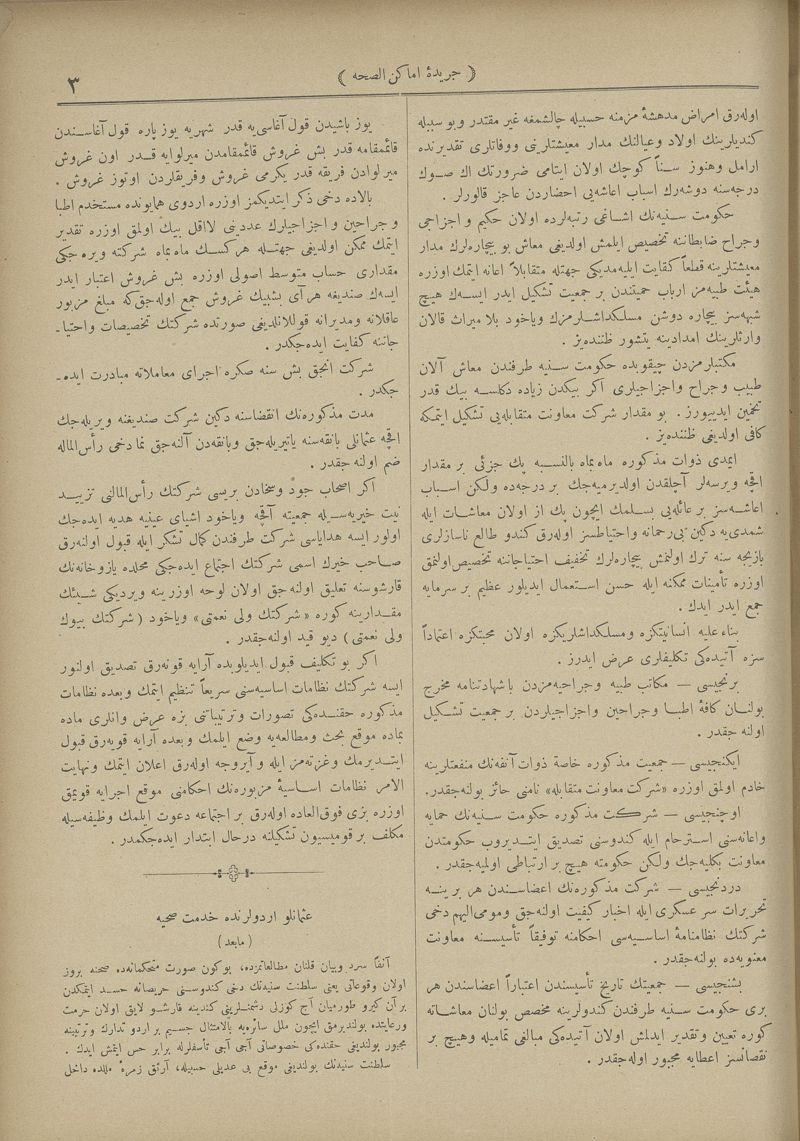 ( جریدهٔ اماكن الصحه )
٣
اوله‌رق امراض مدهشهٔ مزمنه حسبیله چالشمغه غیر مقتدر وبو سببله
كندیلرینك اولاد وعیالنك مدار معیشتلرینی ووفاتلری تقدیرنده
ارامل وهنوز سناً كوچك اولان ایتامی ضرورتك اك صوك
درجه‌سنه دوشه‌رك اسباب اعاشه‌یی احضاردن عاجز قالورلر .
حكومت سنیه‌نك اشاغی رتبه‌لرده اولان حكیم و اجزاجی
وجراح ضابطاننه تخصیص ایلمش اولدیغی معاش بو بیچاره‌لرك مدار
معیشتلرینه قطعاً كفایت ایلیه‌مدیكی جهتله متقابلاً اعانه ایتمك اوزره
هیئت طبیه‌مز ارباب حمیتندن بر جمعیت تشكیل ایدر ایسه‌ك هیچ
شبهه‌سز بیچاره دوشن مسلكداشلرمزك ویاخود بلا میراث قالان
وارثلرینك امدادینه یتشور ظننده‌یز .
مكتبلرمزدن چیقوبده حكومت سنیه طرفندن معاش آلان
طبیب وجراح واجزاجیلری اكر بیكدن زیاده دكلسه بیك قدر
تخمین ایدییورز . بو مقدار شركت معاونت متقابله‌یی تشكیل ایتمكه
كافی اولدیغی ظننده‌یز .
ایمدی ذوات مذكوره ماه‌بماه بالنسبه پك جزئی بر مقدار
اقچه ویرسه‌لر آچلقدن اولدیرمیه‌جك بر درجه‌ده ولكن اسباب
اعاشه‌سز بر عائله‌یی بسلمك ایچون پك از اولان معاشات ایله
شمدی‌یه دكین بی‌رحمانه واحتیاطسز اوله‌رق كندو طالع ناسازلری
بازیچه سنه ترك اولنمش بیچاره‌لرك تخفیف احتیاجاتنه تخصیص اولنمق
اوزره تأمینات ممكنه ایله حسن استعمال ایدیلور عظیم بر سرمایه
جمع ایدر ایدك .
بناء علیه انسانیتكزه ومسلكداشلریكزه اولان محبتكزه اعتماداً
سزه آتیده‌كی تكلیفلری عرض ایدرز .
برنجیسی — مكاتب طبیه وجراحیه‌مزدن باشهادتنامه مخرج
بولنان كافهٔ اطبا وجراحین واجزاجیلردن بر جمعیت تشكیل
اولنه جقدر .
ایكنجیسی — جمعیت مذكوره خاصهٔ ذوات آنفه‌نك منفعتلرینه
خادم اولمق اوزره «شركت معاونت متقابله» نامنی حائز بولنه‌جقدر.
اوچنجیسی — شركت مذكوره حكومت سنیه‌نك حمایه
واعانه‌سنی استرحام ایله كندوسنی تصدیق ایتدیروب حكومتدن
معاونت بكلیه‌جك ولكن حكومته هیچ بر ارتباطی اولمیه‌جقدر.
دردنجیسی — شركت مذكوره‌نك اعضاسندن هر برینه
تحریرات سر عسكری ایله اخبار كیفیت اولنه‌جق ومومی‌الیهم دخی
شركتك نظامنامهٔ اساسیه‌سی احكامنه توفیقاً تأسیسنه معاونت
معنویه‌ده بولنه‌جقدر .
بشنجیسی — جمعیتك تاریخ تأسیسندن اعتباراً اعضاسندن هر
بری حكومت سنیه طرفندن كندولرینه مخصص بولنان معاشاته
كوره تعیین وتقدیر ایدلمش اولان آتیده‌كی مبالغی تمامیله وهیچ بر
نقصانسز اعطایه مجبور اوله‌جقدر .
یوز باشیدن قول آغاسی‌یه قدر شهریه یوز پاره قول آغاسندن
قائممقامه قدر بش غروش قائممقامدن میرلوایه قدر اون غروش
میرلوادن فریقه قدر یكرمی غروش وفریقلردن اوتوز غروش .
بالاده دخی ذكر ایتدیكمز اوزره اردوی همایونده مستخدم اطبا
و جراحین و اجزاجیلرك عددینی لااقل بیك اولمق اوزره تقدیر
ایتمك ممكن اولدیغی جهتله هر كسك ماه بماه شركته ویره جكی
مقداری حساب متوسط اصولی اوزره بش غروش اعتبار ایدر
ایسه‌ك صندیغه هر آی بشبیك غروش جمع اوله‌جق‌كه مبلغ مزبور
عاقلانه ومدبرانه قوللانلدیغی صورتده شركتك تخصیصات واحتیا-
جاتنه كفایت ایده‌جكدر .
شركت انجق بش سنه صكره اجرای معاملاته مبادرت ایده-
جكدر .
مدت مذكوره‌نك انقضاسنه دكین شركت صندیغنه ویریله‌جك
اقچه عثمانلی بانقه‌سنه یاتیریله‌جق وبانقه‌دن آلنه‌جق نما دخی رأس‌الماله
ضم اولنه جقدر .
اكر اصحاب جود وسخادن بریسی شركتك رأس‌المالنی تزیید
نیت خیریه‌سیله جمعیته آقچه ویاخود اشیای عینیه هدیه ایده‌جك
اولور ایسه هدایاسی شركت طرفندن كمال تشكر ایله قبول اولنه‌رق
صاحب خیرك اسمی شركتك اجتماع ایده‌جكی محلده یازوخانه‌نك
قارشوسنه تعلیق اولنه‌جق اولان لوحه اوزرینه ویردیكی شیئك
مقدارینه كوره «شركتك ولی نعمتی» ویاخود (شركتك بیوك
ولی نعمتی) دیو قید اولنه‌جقدر .
اكر بو تكلیف قبول ایدیلوبده آرایه قونه‌رق تصدیق اولنور
ایسه شركتك نظامات اساسیه‌سنی سریعاً تنظیم ایتمك وبعده نظامات
مذكوره حقنده‌كی تصورات وترتیباتنی بزه عرض وانلری ماده
بماده موقع بحث ومطالعه‌یه وضع ایلمك وبعده آرایه قویه‌رق قبول
ایتدیرمك وغزته‌مز ایله و آیروجه اوله‌رق اعلان ایتمك ونهایت
الامر نظامات اساسیهٔ مزبوره‌نك احكامنی موقع اجرایه قویمق
اوزره بزی فوق‌العاده اوله‌رق بر اجتماعه دعوت ایلمك وظیفه‌سیله
مكلف بر قومیسیون تشكیلنه درحال ابتدار ایده‌جكمدر .
عثمانلو اردولرنده خدمت صحیه
( مابعد )
آنفاً سرد وبیان قلنان مطالعاتمزده، بوكون صورت متحكمانه‌ده صحنه بروز
اولان وقوعاتی یعنی سلطنت سنیه‌نك دخی كندوسنی حریصانه حسد ایتمكدن
بر آن كیرو طورمیان آج كوزلی دشمنلرینی كندینه قارشو لایق اولان حرمت
ورعایتده بولندیرمق ایچون ملل سائره‌یه بالامتثال جسیم بر اردو تدارك وترتیبنه
مجبور بولندیغی حقنده‌كی خصوصاتی آجی آجی تأسفلرله برابر حس ایتمش ایدك .
سلطنت سنیه‌نك بولندیغی موقع بی عدیلی حسبیله، آرتق زمرهٔ ملله‌ده داخل